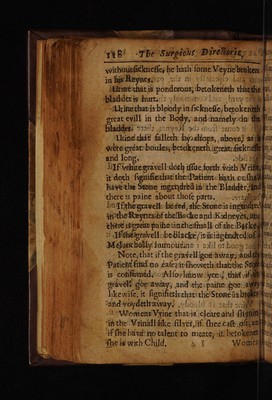 118 The Surgions Directorie,
without sicknesse, he hath some Veyne broken
in his Reynes.
Urine that is ponderous, betokeneth that the
bladder is hurt.
Urine that is bloody in sicknesse, betokeneth
great evill in the Body, and namely in the
bladder.
Urine that falleth by drops, above, as it
were great boules, betokeneth great sicknesse
and long.
If white gravell doth issue forth with Urine,
it doth signifie that the Patient hath or shall
have the Stone ingendred in the Bladder, and
there is paine about those parts.
If the gravell be red, the Stone is ingendred
in the Reynes of the Backe and Kidneyes, and
there is great paine in the small of the Backe
If the gravell be blacke, it is ingendred of
Melancholly humours
Note, that if the gravell goe away, and the
Patient find no ease, it sheweth that the Stone
is consumed. Also know yee, that if the
gravell goe away, and the paine goe away
likewise, it signifieth that the Stone is broken
and voydeth away.
Womens Vrine that is cleare and shining
in the Vrinall like silver, if shee cast oft, and
if she have no talent to meate, it betokeneth
she is with Child.
Womens